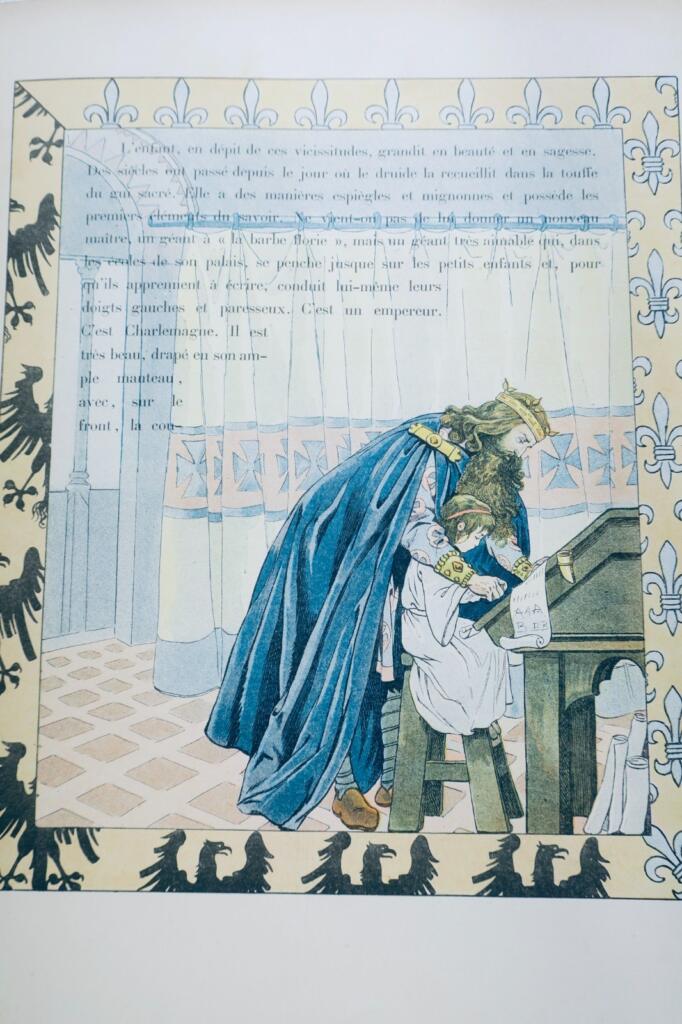 L'enfant, en dépit de ces vicissitudes, grandit en beauté et en sagesse.
Des siècles ont passé depuis le jour où le druide la recueillit dans la touffe
du gui sacré. Elle a des manières espiègles et mignonnes et possède les
premiers éléments du savoir. Ne vient-on pas de lui donner un nouveau
maître, un géant à « la barbe florie », mais un géant très aimable qui, dans
les écoles de son palais, se penche jusque sur les petits enfants et, pour
qu'ils apprennent à écrire, conduit lui-même leurs
doigts gauches et paresseux. C'est un empereur.
C'est Charlemagne. Il est
très beau, drapé en son am-
ple manteau,
avec, sur le
front, la cou-
AAA
B B B